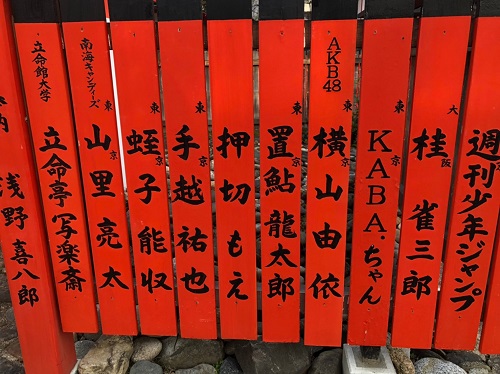 週刊少年ジャンプ
大阪
桂雀三郎
東京
KABA.ちゃん
AKB48
東京
横山由依
東京
置鮎龍太郎
東京
押切もえ
東京
手越祐也
東京
蛭子能収
南海キャンディーズ
東京
山里亮太
立命館大学
立命亭写楽斎
浅野喜八郎